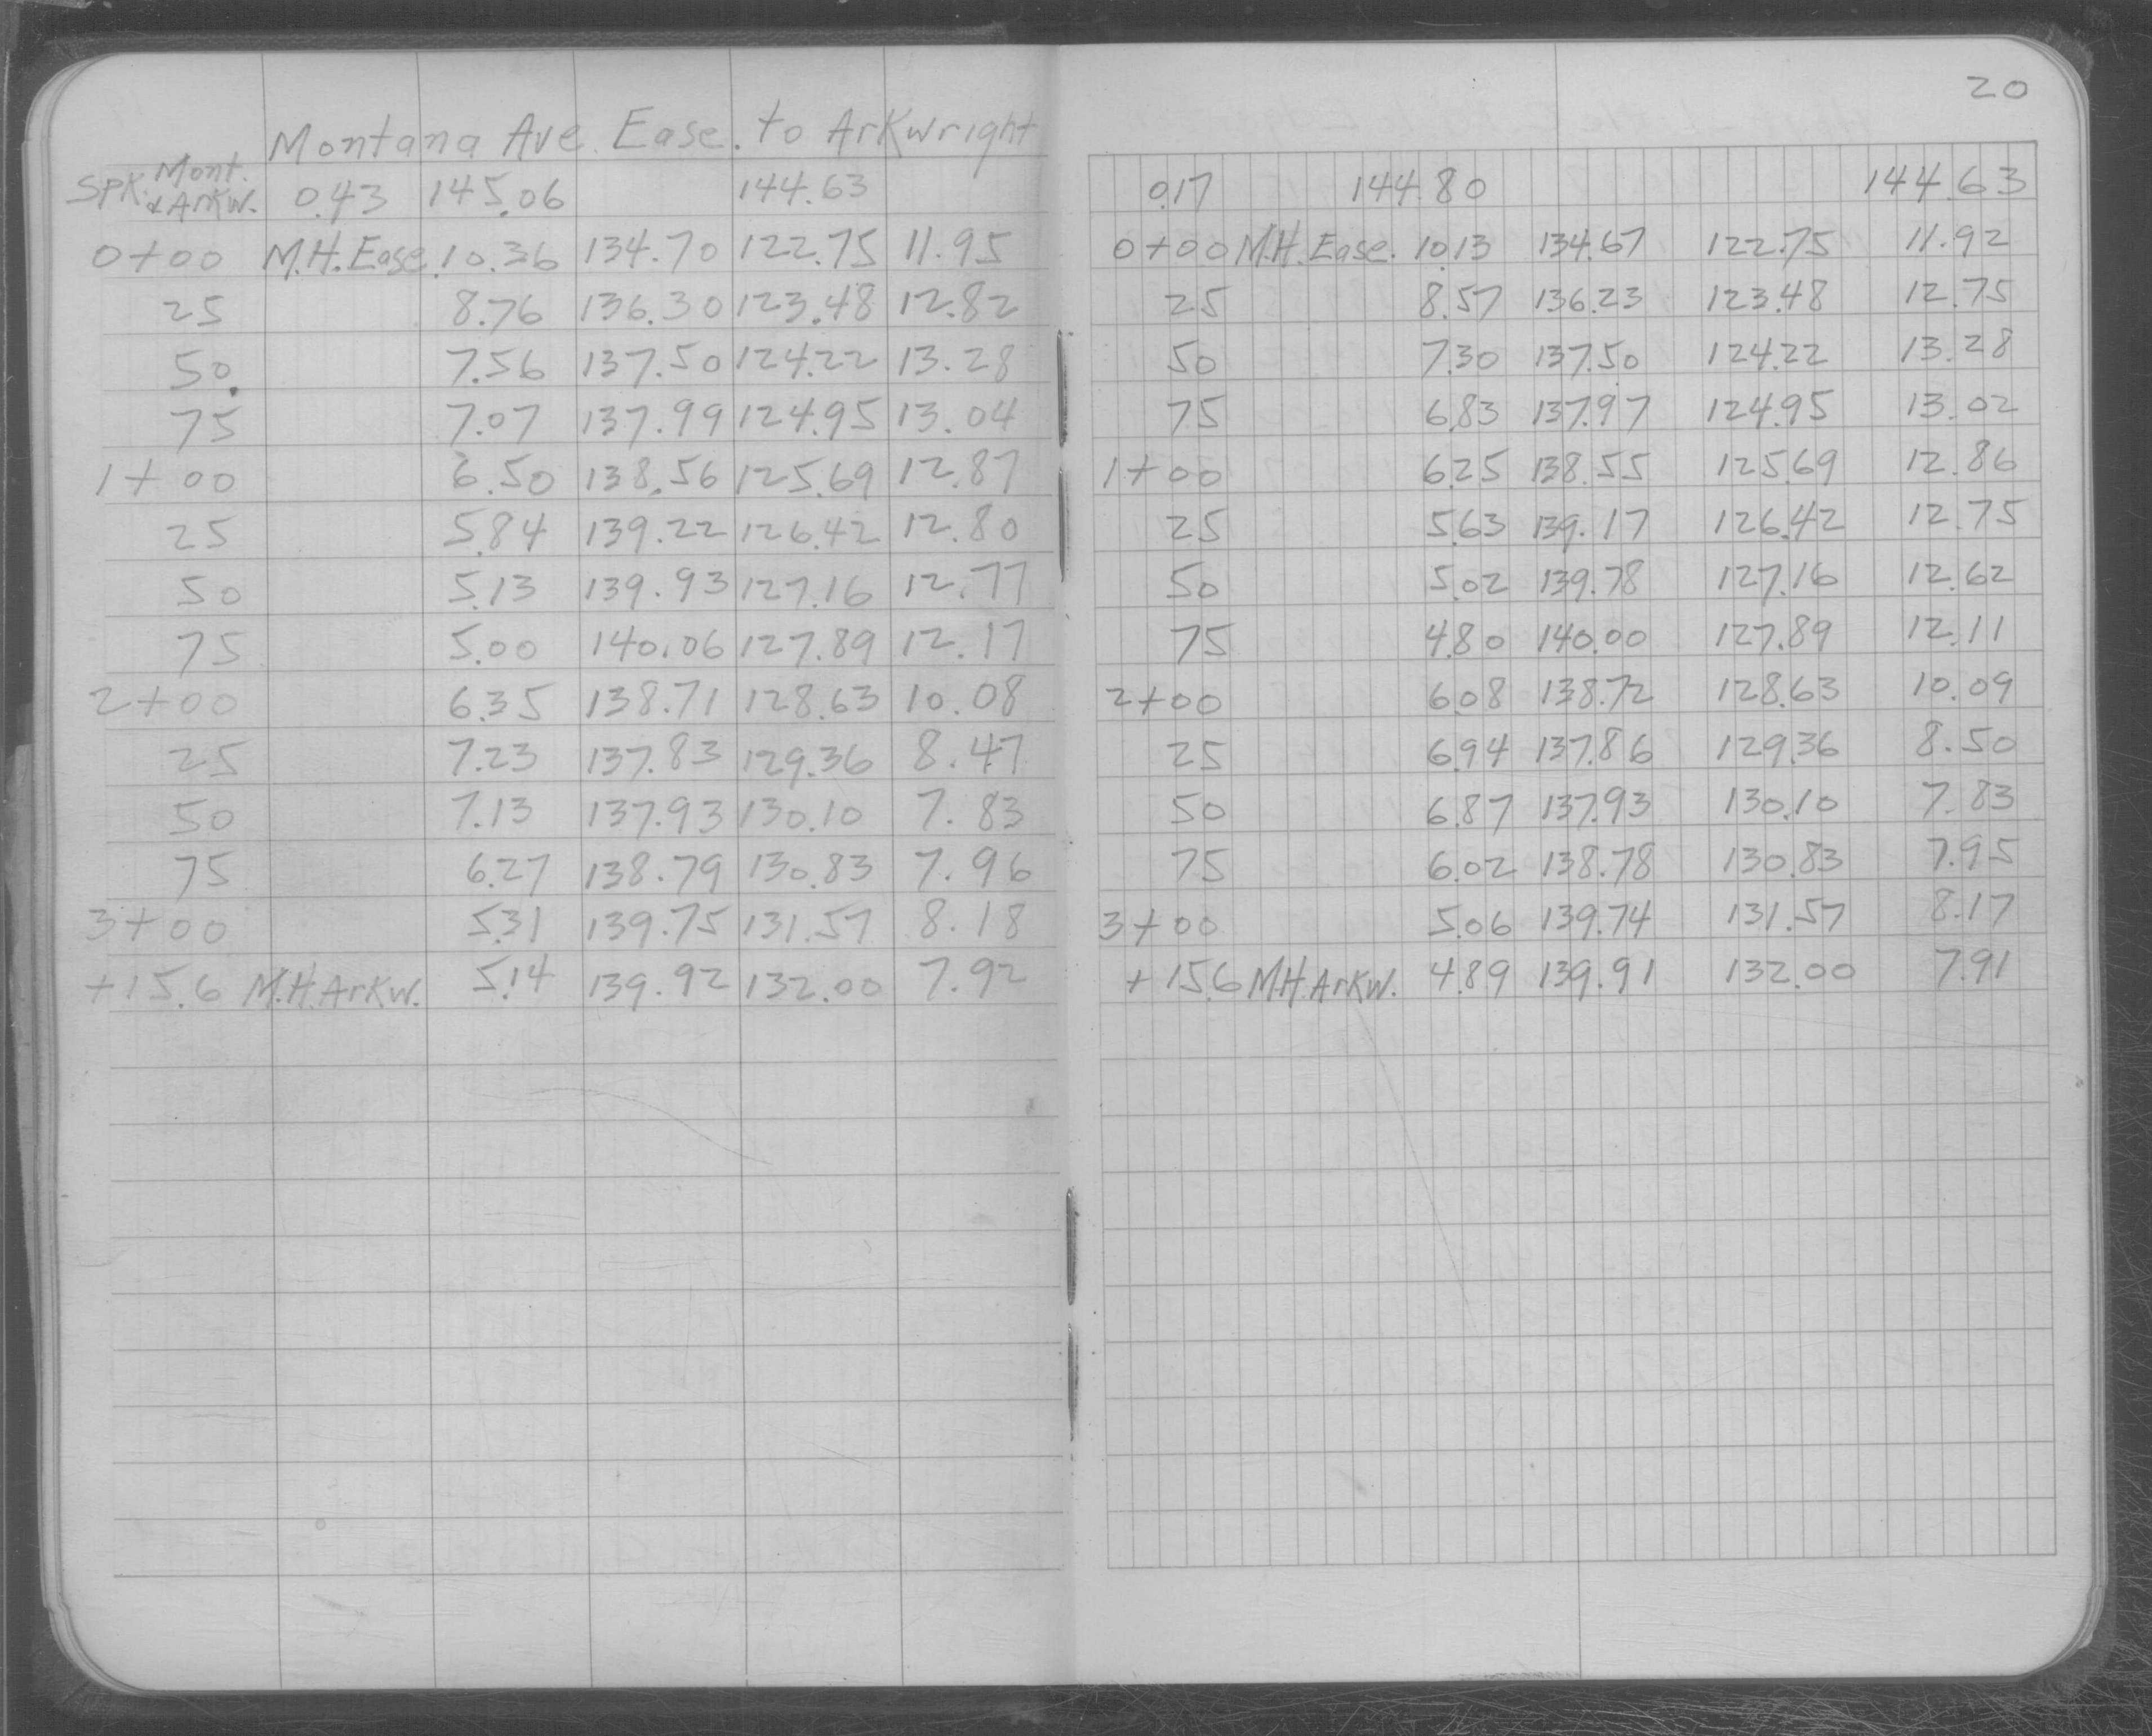 Montana Ave. Ease. to Arkwright
SPK. Mont. & Arkw. 0.43 145.06 144.63
0+00 M.H. Ease. 10.36 134.70 122.75 11.95
25 8.76 136.30 123.48 12.82
50 7.56 137.50 124.22 13.28
75 7.07 137.99 124.95 13.04
1+00 6.50 138.56 125.69 12.87
25 5.84 139.22 126.42 12.80
50 5.13 139.93 127.16 12.77
75 5.00 140.06 127.89 12.17
2+00 6.35 138.71 128.63 10.08
25 7.23 137.83 129.36 8.47
50 7.13 137.93 130.10 7.83
75 6.27 138.79 130.83 7.96
3+00 5.31 139.75 131.57 8.18
+15.6 M.H. Arkw. 5.14 139.92 132.00 7.92
20
0.17 144.80 144.63
0+00 M.H. Ease. 10.13 134.67 122.75 11.92
25 8.57 136.23 123.48 12.75
50 7.30 137.50 124.22 13.28
75 6.83 137.97 124.95 13.02
1+00 6.25 138.55 125.69 12.86
25 5.63 139.17 126.42 12.75
50 5.02 139.78 127.16 12.62
75 4.80 140.00 127.89 12.11
2+00 6.08 138.72 128.63 10.09
25 6.94 137.86 129.36 8.50
50 6.87 137.93 130.10 7.83
75 6.02 138.78 130.83 7.95
3+00 5.06 139.74 131.57 8.17
+15.6 M.H. Arkw. 4.89 139.91 132.00 7.91